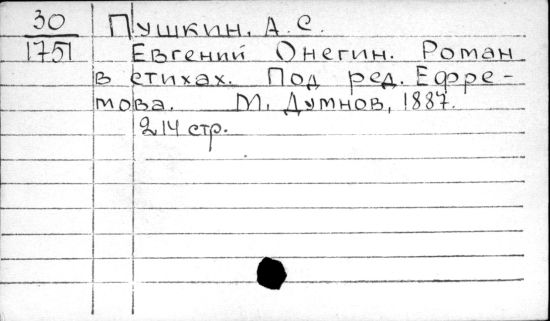 30 Пушкин, А.С.
1751 Евгений Онегин. Роман
в стихах. Под ред. Ефре-
мова. М. Думнов, 1887.
214 стр.